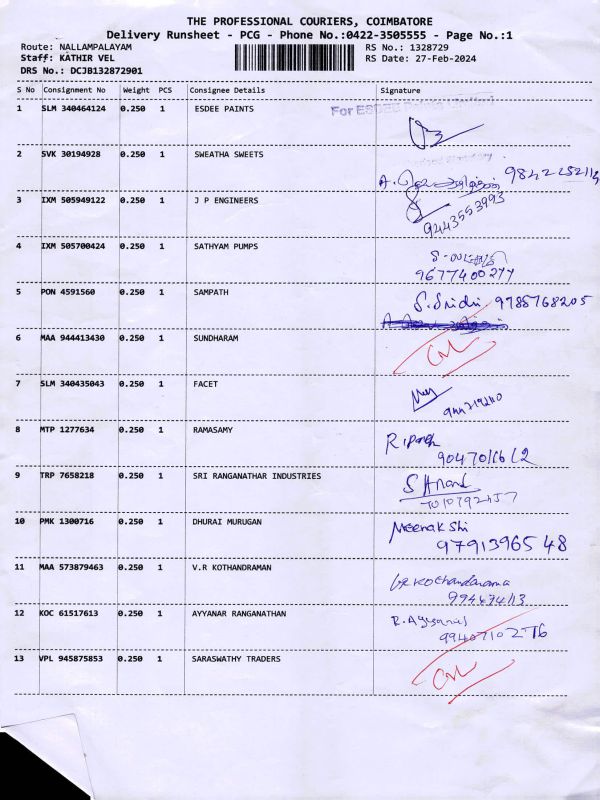 THE PROFESSIONAL COURIERS, COIMBATORE
Delivery Runsheet - PCG - Phone No.:0422-3505555 - Page No.:1
Route: NALLAMPALAYAM RS No.: 1328729
Staff: KATHIR VEL RS Date: 27-Feb-2024
DRS No.: DCJB132872901
S No Consignment No Weight PCS Consignee Details Signature
1 SLM 340464124 0.250 1 ESDEE PAINTS For ESDEE
2 SVK 30194928 0.250 1 SWEATHA SWEETS
3 IXM 505949122 0.250 1 J P ENGINEERS
9443553993
4 IXM 505700424 0.250 1 SATHYAM PUMPS
9677400277
5 PON 4591560 0.250 1 SAMPATH S. Sridhi 9785768205
6 MAA 944413430 0.250 1 SUNDHARAM
7 SLM 340435043 0.250 1 FACET
8 MTP 1277634 0.250 1 RAMASAMY
9 TRP 7658218 0.250 1 SRI RANGANATHAR INDUSTRIES S Anand
10 PMK 1300716 0.250 1 DHURAI MURUGAN Meenakshi
9791396548
11 MAA 573879463 0.250 1 V.R KOTHANDRAMAN
12 KOC 61517613 0.250 1 AYYANAR RANGANATHAN
13 VPL 945875853 0.250 1 SARASWATHY TRADERS